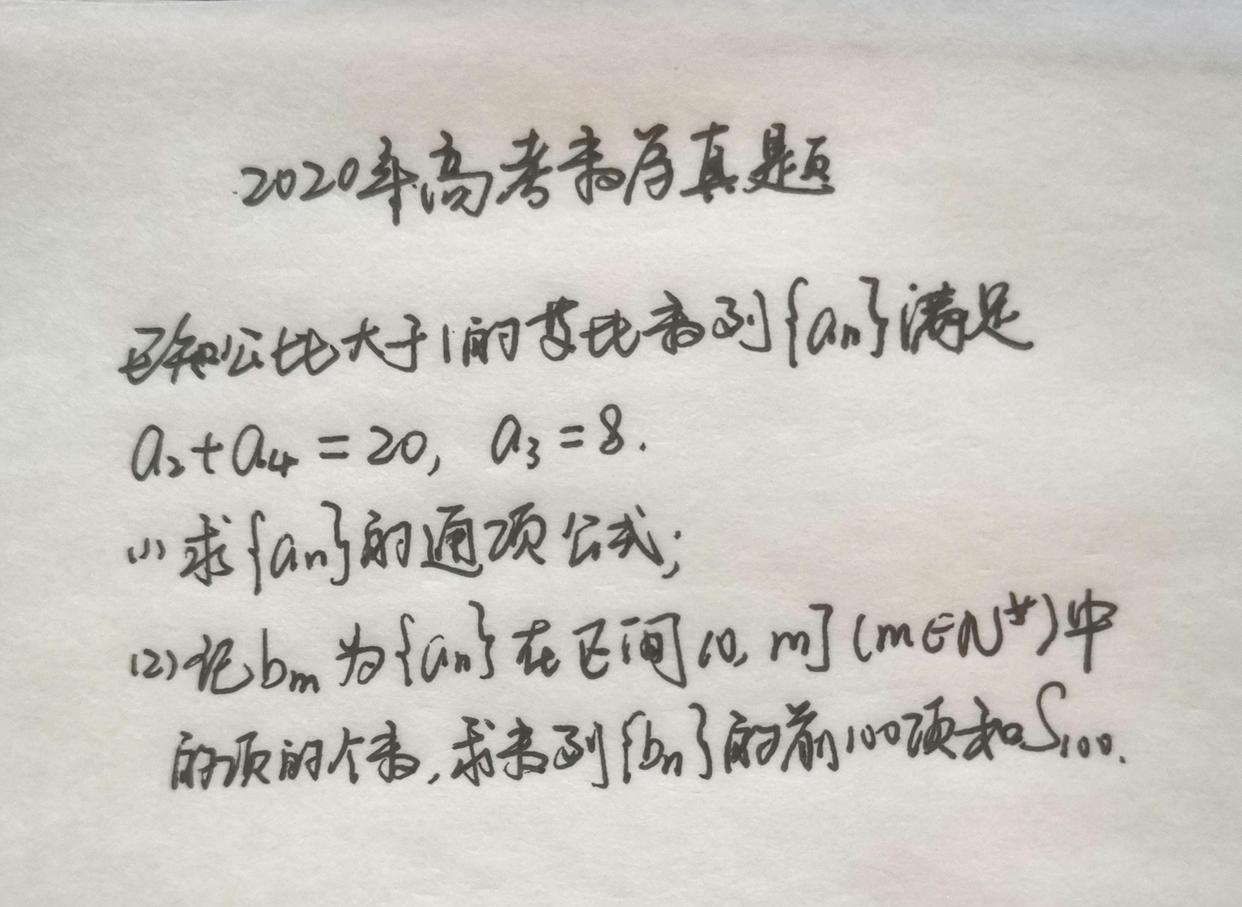 2020年高考数学真题
已知公比大于1的等比数列{aₙ}满足
a₂+a₄=20, a₃=8.
(1)求{aₙ}的通项公式;
(2)记bₘ为{aₙ}在区间(0, m](m∈N*)中
的项的个数,求数列{bₙ}的前100项和S₁₀₀.